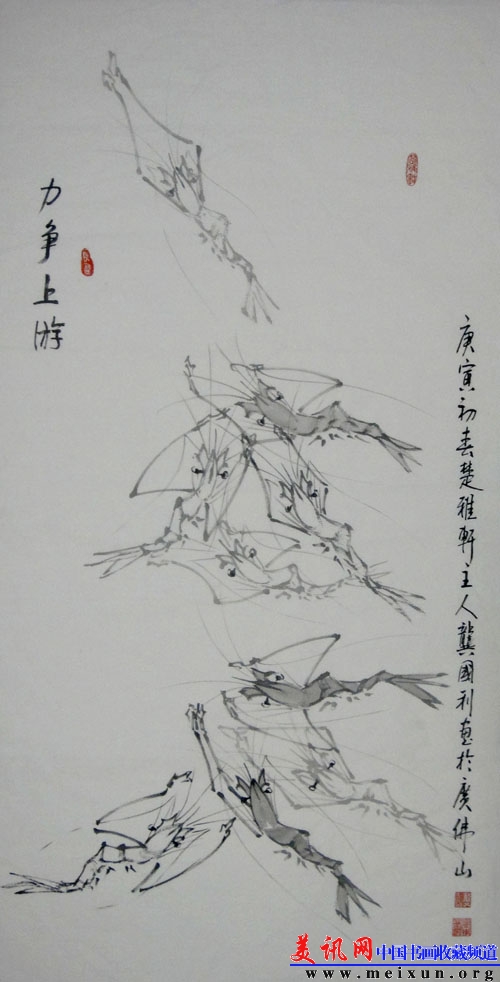 力争上游
庚寅初春楚雅軒主人龔國利画於廣佛山
美讯网 中国书画收藏频道
www.meixun.org